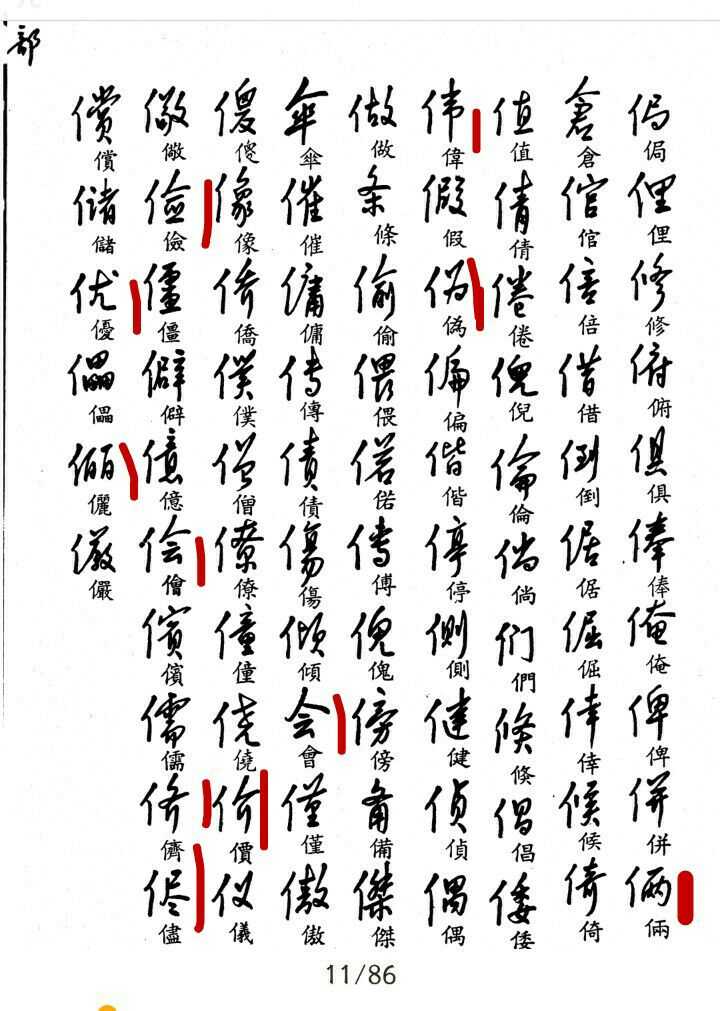 部
侷侷俚俚修修俯俯俱俱俸俸俺俺俾俾併併俩倆
倉倉倌倌倍倍借借倒倒倨倨倔倔倖倖候候倚倚
值值倩倩倦倦倪倪倫倫倘倘们們倏倏倡倡倭倭
伟偉假假伪偽偏偏偕偕停停側側健健偵偵偶偶
做做条條偷偷偎偎偌偌傅傅傀傀傍傍备備傑傑
傘傘催催傭傭传傳债債傷傷倾傾会會僅僅傲傲
傻傻像像侨僑僕僕僧僧僚僚僮僮侥僥价價仪儀
儆儆俭儉僵僵僻僻億億侩儈儐儐儒儒侪儕侭儘
償償儲儲优優儡儡俪儷儼儼
11/86